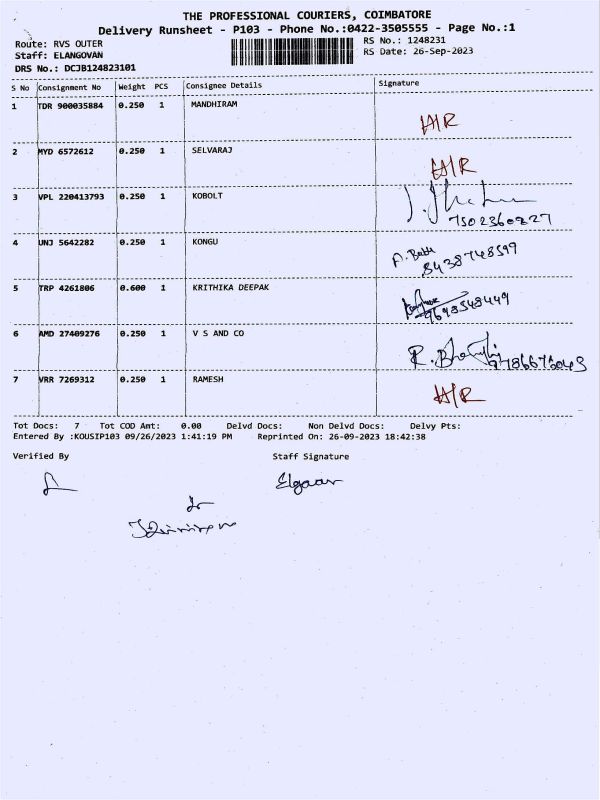 THE PROFESSIONAL COURIERS, COIMBATORE
Delivery Runsheet - P103 - Phone No.:0422-3505555 - Page No.:1
Route: RVS OUTER RS No.: 1248231
Staff: ELANGOVAN RS Date: 26-Sep-2023
DRS No.: DCJB124823101
S No Consignment No Weight PCS Consignee Details Signature
1 TDR 900035884 0.250 1 MANDHIRAM
2 MYD 6572612 0.250 1 SELVARAJ
3 VPL 220413793 0.250 1 KOBOLT
7502360827
4 UNJ 5642282 0.250 1 KONGU
8438748599
5 TRP 4261806 0.600 1 KRITHIKA DEEPAK
9698548449
6 AMD 27409276 0.250 1 V S AND CO
7 VRR 7269312 0.250 1 RAMESH
Tot Docs: 7 Tot COD Amt: 0.00 Delvd Docs: Non Delvd Docs: Delvy Pts:
Entered By :KOUSIP103 09/26/2023 1:41:19 PM Reprinted On: 26-09-2023 18:42:38
Verified By Staff Signature